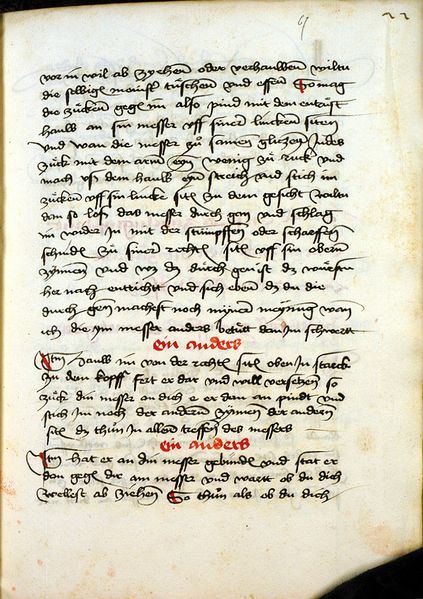 9 22
vor in wil ab zyehen oder verhauwen wiltu
die selbigen tuschen und effen So mag
du zucken gegen im also pind mit dem entrüst
hauw an sin messer uff siner lincken siten
und wan die messer zu samen glizen Indes
zuck mit dem arm eyn wenig zu ruck und
mach uß dem hauw eyn streich und stich im
zucken uff sin lincke siten zu dem gesicht
dan so loß das messer durch gen und schlag
im wider In mit der stumpffen oder scharffen
schniden zu siner rechten siten uff sin obern
zynnen und dz durch
her nach entricht und sich eben dz du die
durch gen machest noch myner meynung wan
ich die Im messer anders betutt dan Im schwertt
ein anders
Item hauw im von der rechten siten oben In starck
zu dem kopff fert er dar und will versetzen so
zuck din messer an dich e er dam an pindt und
stich Im noch der andern zynnen der andern
siten dz thun In allem treffen des messers
ein anders
Item hat er an din messer gebunden und stat er
don gegen dir am messer und wartt ob du dich
wellest ab ziehen So thun als ob du dich